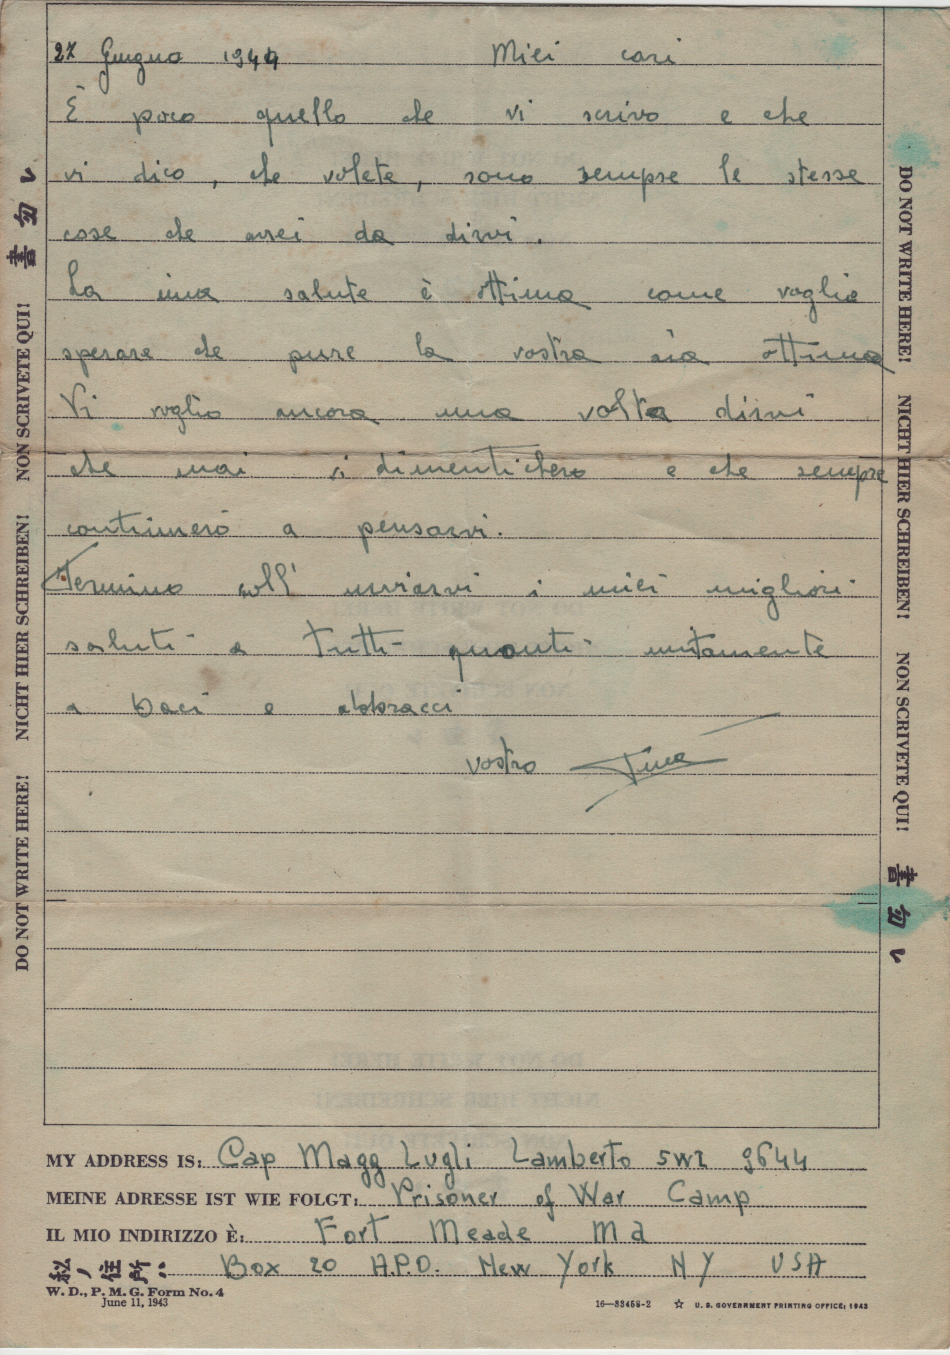 27 Giugno 1944 Miei cari
È poco quello che vi scrivo e che
vi dico, che volete, sono sempre le stesse
cose che avrei da dirvi.
La mia salute è ottima come voglio
sperare che pure la vostra sia ottima
Vi voglio ancora una volta dirvi
che mai vi dimenticherò e che sempre
continuerò a pensarvi.
Termino coll' inviarvi i miei migliori
saluti a tutti quanti unitamente
a baci e abbracci
vostro
DO NOT WRITE HERE! NICHT HIER SCHREIBEN! NON SCRIVETE QUI! 書勿レ
DO NOT WRITE HERE! NICHT HIER SCHREIBEN! NON SCRIVETE QUI! 書勿レ
MY ADDRESS IS: Cap Magg Lugli Lamberto 5WI 9644
MEINE ADRESSE IST WIE FOLGT: Prisoner of War Camp
IL MIO INDIRIZZO È: Fort Meade Md
私ノ住所: Box 20 H.P.O. New York NY USA
W. D., P. M. G. Form No. 4
June 11, 1943
16—33458-2 ☆ U. S. GOVERNMENT PRINTING OFFICE: 1943